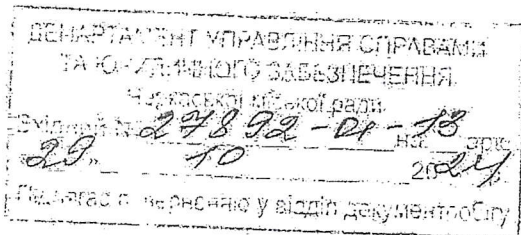 ДЕПАРТАМЕНТ УПРАВЛІННЯ СПРАВАМИ
ТА ЮРИДИЧНОГО ЗАБЕЗПЕЧЕННЯ
Черкаської міської ради
Вхідний № 27892-01-13 на арк.
29 " 10 2024
Підлягає поверненню у відділ документообігу